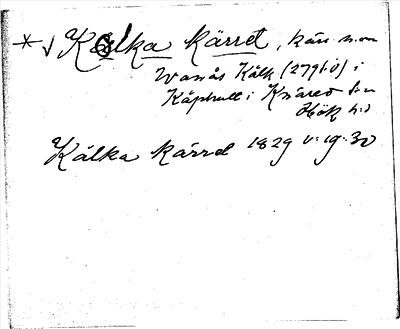 * √ Kålka kärret, kärr n.om
Wanås Kålk (2791:0) i
Kåphult i Knäred s:n
Hök h:d
Kålka kärret 1829 U:19:30